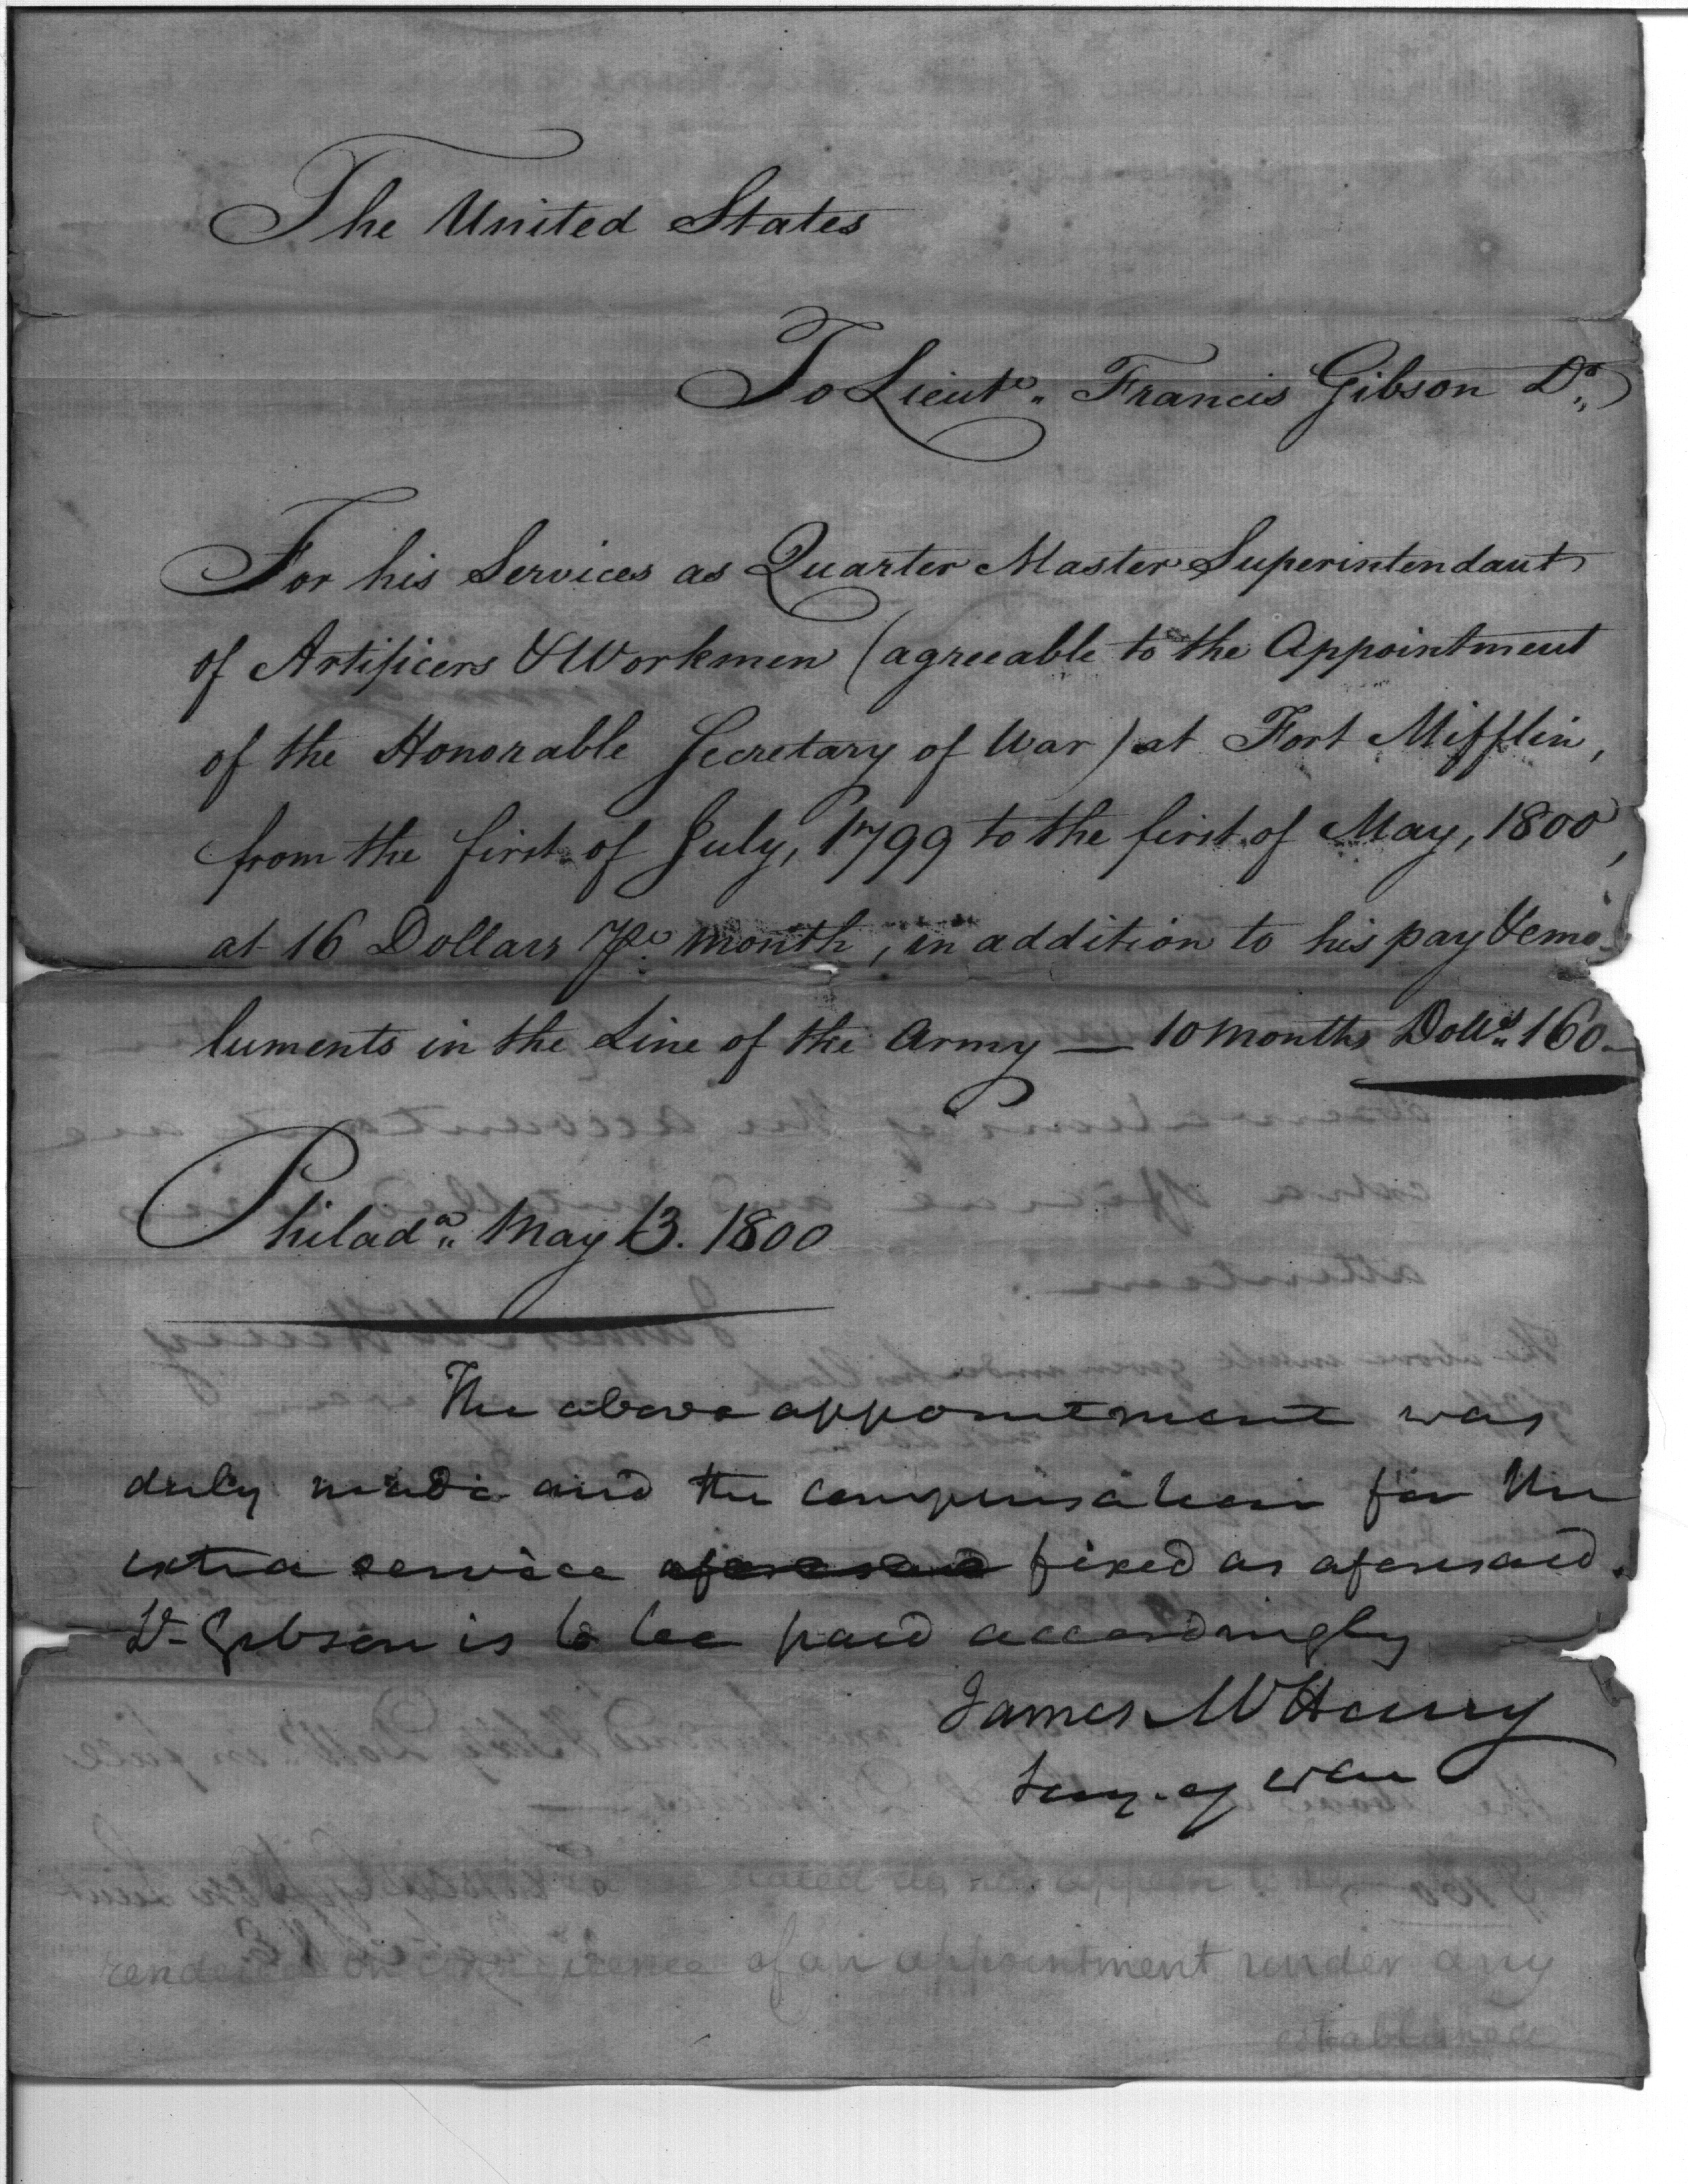 The United States
To Lieut. Francis Gibson Dr.
For his Services as Quarter Master Superintendant
of Artificers & Workmen (agreeable to the Appointment
of the Honorable Secretary of War) at Fort Mifflin,
from the first of July, 1799 to the first of May, 1800,
at 16 Dollars Pr. month, in addition to his pay & emo-
luments in the Line of the Army — 10 months Dolls. 160—
Philada. May 13. 1800
The above appointment was
duly made and the compensation for the
extra service aforesaid fixed as aforesaid.
Lt Gibson is to be paid accordingly
James McHenry
Secy. of War
of an appointment under any